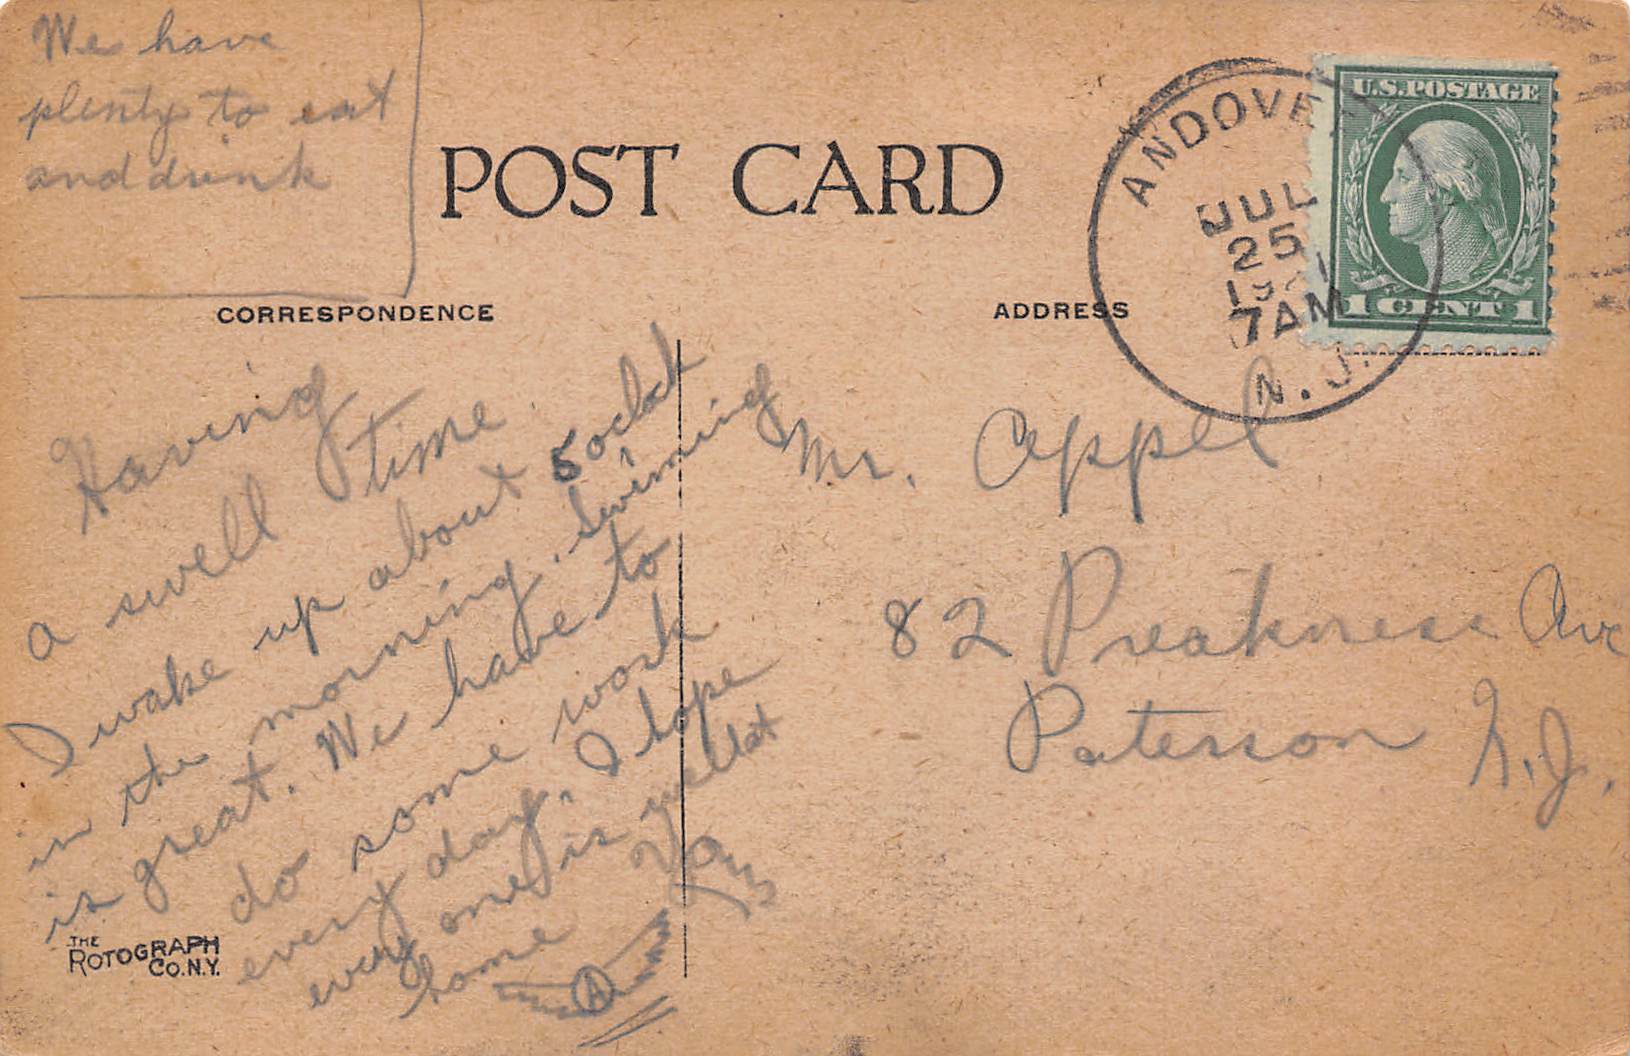 We have
plenty to eat
and drink
POST CARD
CORRESPONDENCE
ADDRESS
ANDOVER
JUL
25
7 AM
N.J.
U.S. POSTAGE
1 CENT 1
Having
a swell time.
I wake up about 5 oclock
in the morning. Swiming
is great. We have to
do some work
every day. I hope
every one is well at
home
A
Mr. Appel
82 Preakness Ave
Paterson N.J.
THE
ROTOGRAPH
CO. N.Y.